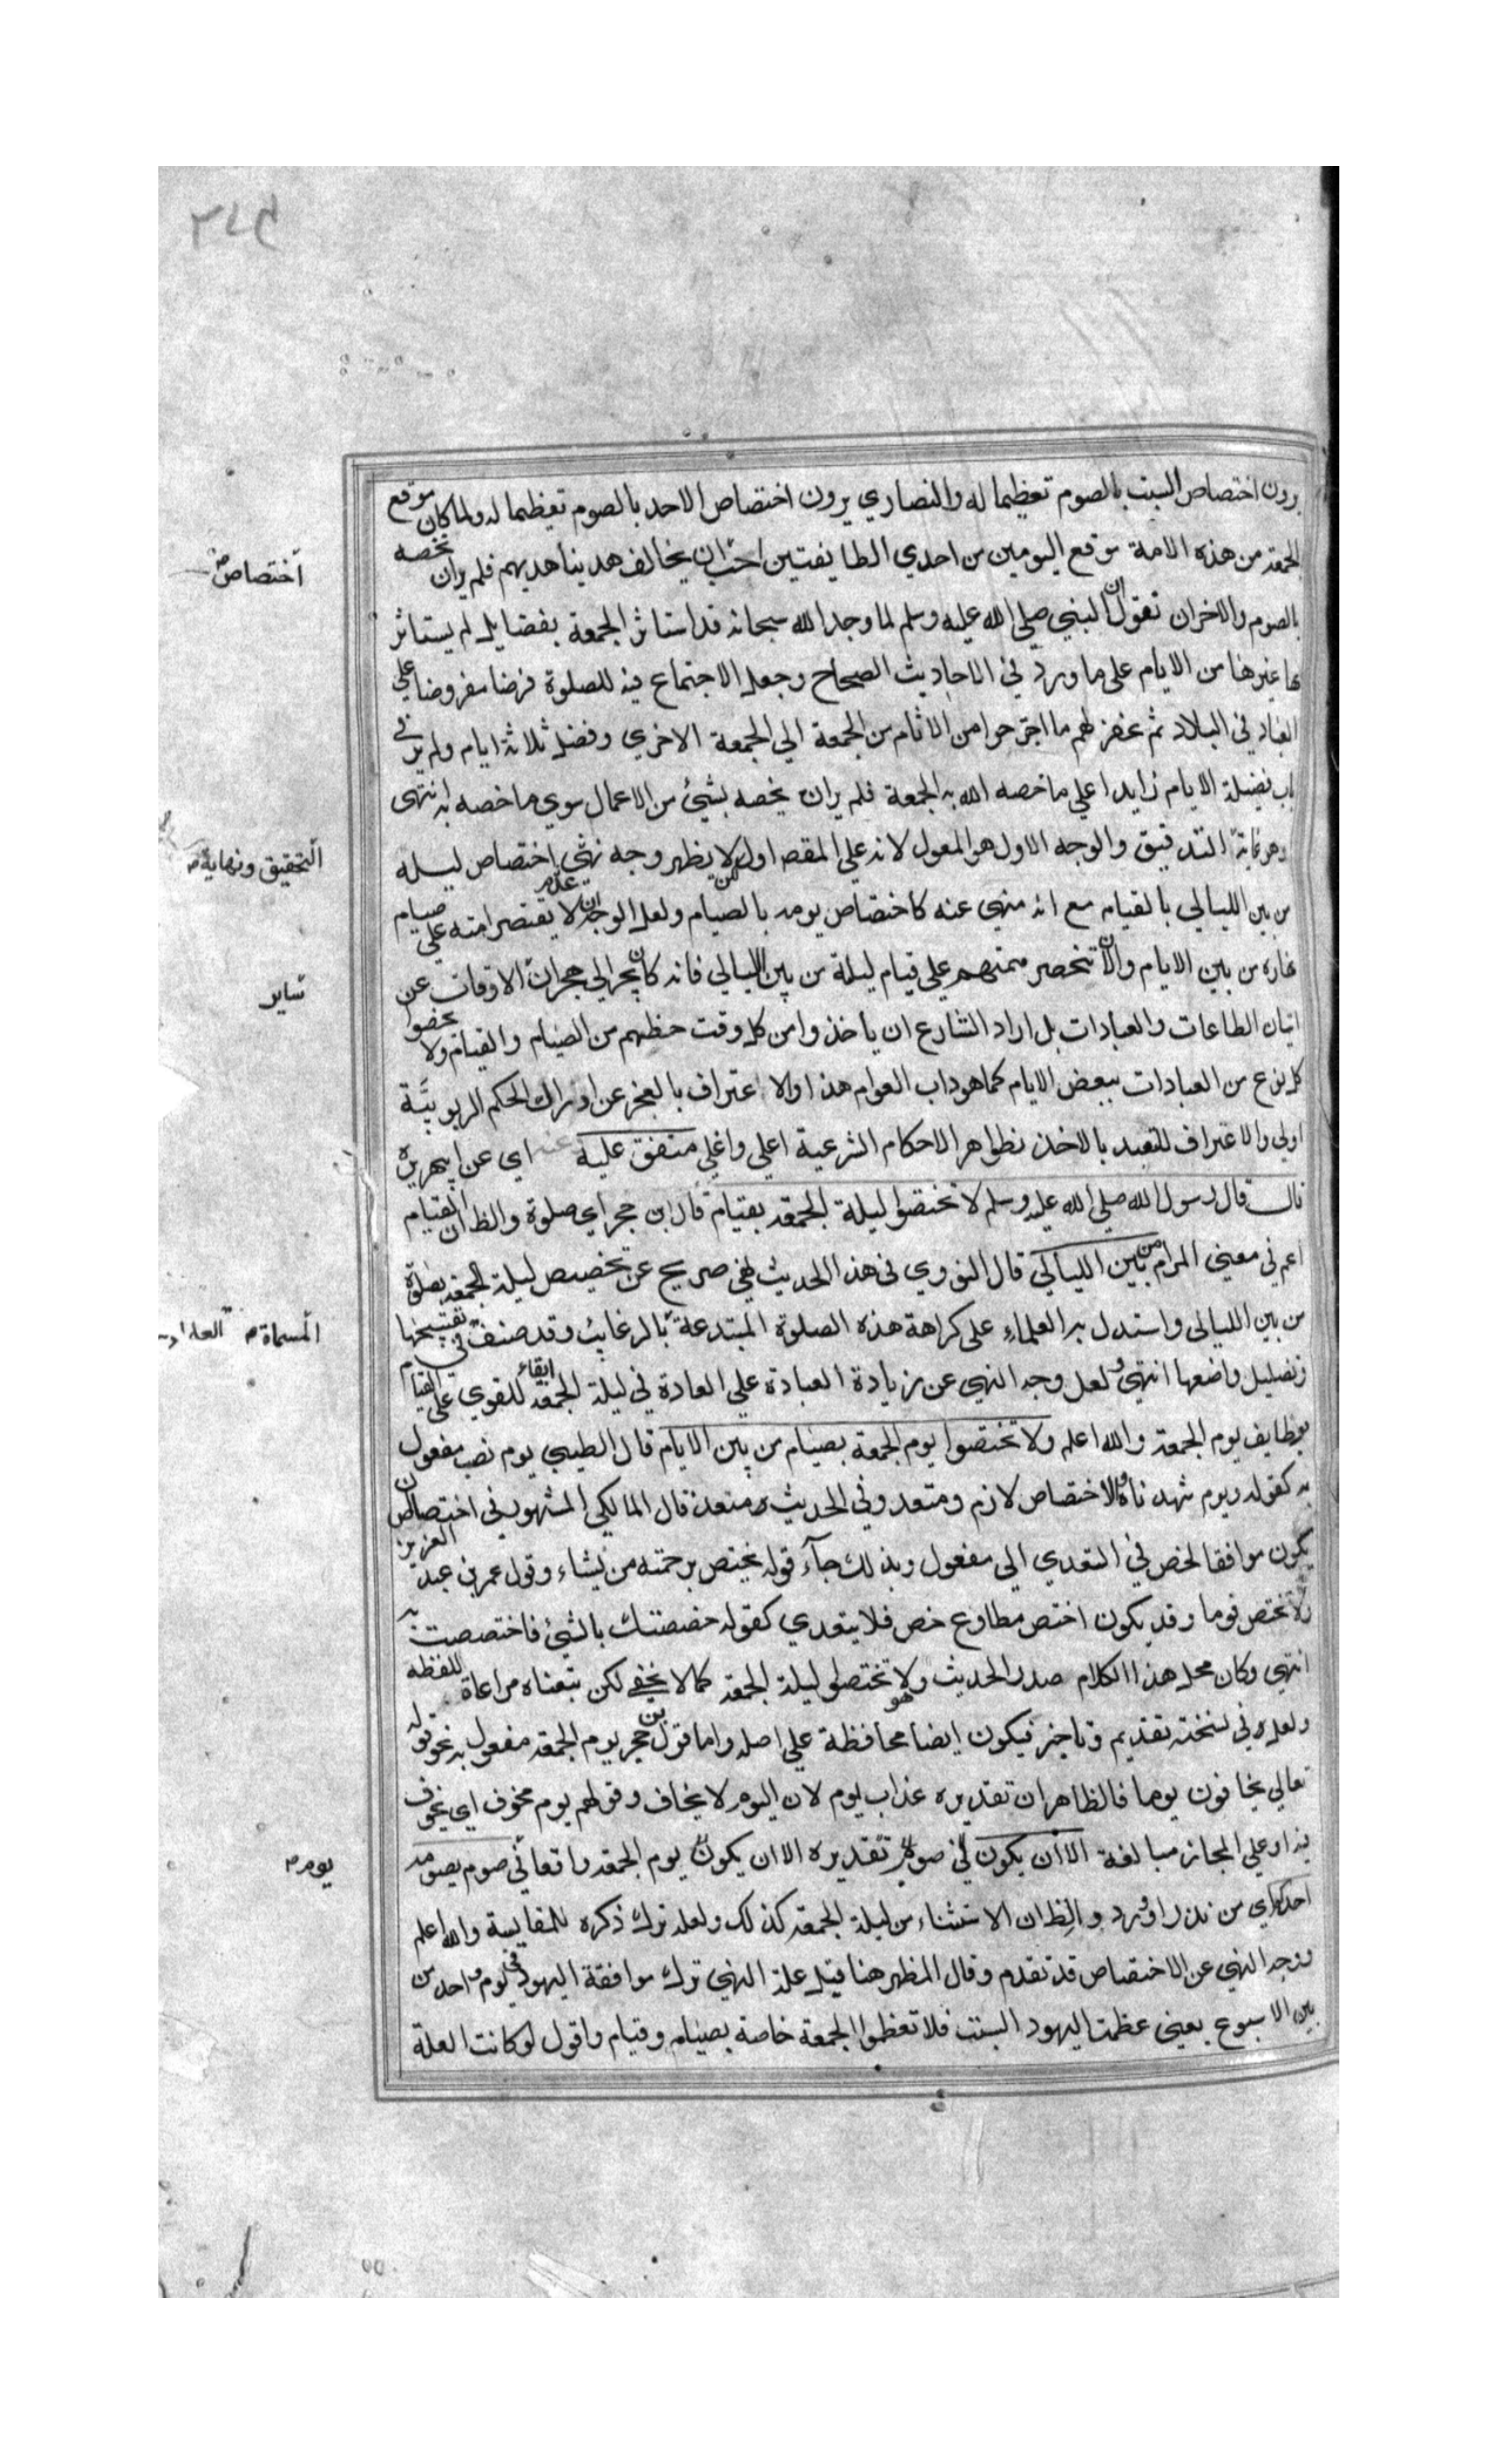 يرون اختصاص السبت بالصوم تعظيما له والنصاري يرون اختصاص الاحد بالصوم تعظيما له ولما كان موقع
الجمعة من هذه الامة موقع اليومين من احدي الطايفتين احب ان يخالف هدينا هديهم فلم يران يخصه
بالصوم والاخران تقول ان النبي صلي الله عليه وسلم لما وجد الله سبحانه قد استاثر الجمعة بفضايل لم يستاثر
بها غيرها من الايام علي ما ورد في الاحاديث الصحاح وجعل الاجتماع فيه للصلوة فرضا مفروضا علي
العباد في البلاد ثم غفر لهم ما اجترحوا من الاثام من الجمعة الي الجمعة الاخري وفضل ثلاثة ايام ولم ير في
باب فضيلة الايام زايدا علي ما خصه الله به الجمعة فلم يران يخصه بشيئ من الاعمال سوي ما خصه به انتهي
وهو غاية التدقيق والوجه الاول هو المعول لانه علي المقصد اول لا يظهر وجه نهي اختصاص ليله
من بين الليالي بالقيام مع انه منهي عنه كاختصاص يومه بالصيام ولعل الوجه ان لا يقتصر امته علي صيام
نهاره من بين الايام وان لا تنحصر همتهم علي قيام ليلة من بين الليالي فانه كان يجر الي هجران الاوقات عن
اتيان الطاعات والعبادات بل اراد الشارع ان ياخذوا من كل وقت حظهم من الصيام والقيام ولا يخصوا
كل نوع من العبادات ببعض الايام كما هو داب العوام هذا والاعتراف بالعجز عن ادراك الحكم الربوبيّة
اولي والاعتراف للتعبد بالاخذ بظواهر الاحكام الشرعية اعلي واغلي متفق عليه وعنه اي عن ابي هريرة
قال قال رسول الله صلي الله عليه وسلم لا تختصوا ليلة الجمعة بقيام قال ابن حجر اي صلوة والظ ان القيام
اعم في معني المرام من بين الليالي قال النووي في هذا الحديث نهي صريح عن تخصيص ليلة الجمعة بصلوة
من بين الليالي واستدل به العلماء علي كراهة هذه الصلوة المبتدعة بالرغايب وقد صنف في تقبيحها
وتضليل واضعها انتهي ولعل وجه النهي عن زيادة العبادة علي العادة في ليلة الجمعة ابقاء للقوي علي القيام
بوظايف يوم الجمعة والله اعلم ولا تختصوا يوم الجمعة بصيام من بين الايام قال الطيبي يوم نصب مفعول
به كقوله ويوم شهدناه والاختصاص لازم ومتعد وفي الحديث متعد قال المالكي المشهور في اختص ان
يكون موافقا لخص في التعدي الي مفعول وبذلك جآء قوله يختص برحمته من يشاء وقول عمر بن عبد العزيز
ولا تختص قوما وقد يكون اختص مطاوع خص فلا يتعدي كقوله خصصتك بالشيئ فاختصصت به
انتهي وكان محل هذا الكلام صدر الحديث وهو لا تختصوا ليلة الجمعة كما لا يخفي لكن تبعناه مراعاة للفظه
ولعله في نسخته تقديم وتاخير فيكون ايضا محافظة علي اصله واما قول بن حجر يوم الجمعة مفعول به نحو قوله
تعالي يخافون يوما فالظاهر ان تقديره عذاب يوم لان اليوم لا يخاف وقولهم يوم مخوف اي يخوف
فيه او علي المجاز مبالغة الا ان يكون في صوم تقديره الا ان يكون يوم الجمعة واقعا في صوم يصومه
احدكم اي من نذر او ورد والظ ان الاستثناء من ليلة الجمعة كذلك ولعله ترك ذكره للمقايسة والله اعلم
ووجه النهي عن الاختصاص قد تقدم وقال المظهر هنا قيل علة النهي ترك موافقة اليهود في يوم واحد من
بين الاسبوع يعني عظمت اليهود السبت فلا تعظموا الجمعة خاصة بصيام وقيام واقول لو كانت العلة
اختصاص
التحقيق ونهاية
ساير
المسماة
يوم